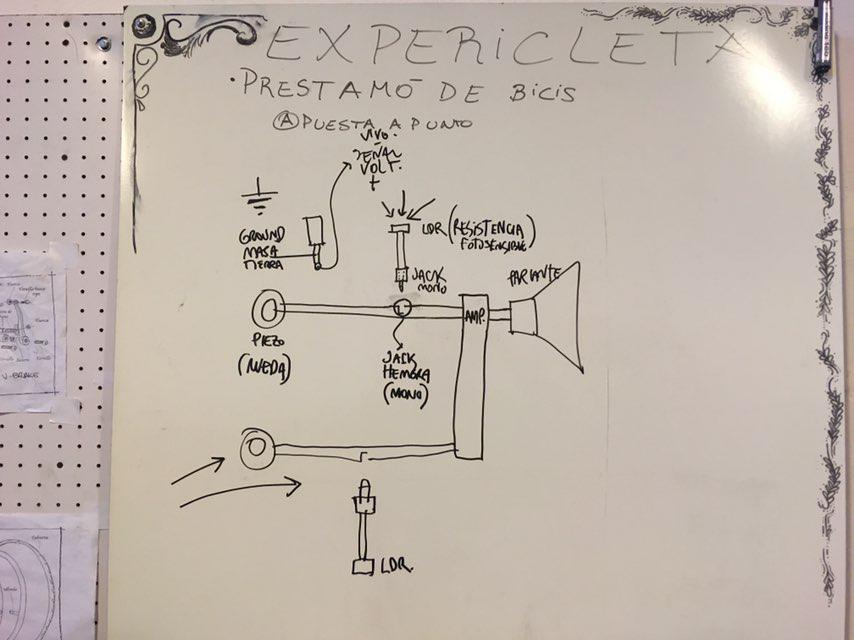 EXPERICLETA
• PRESTAMO DE BICIS
Ⓐ PUESTA A PUNTO
VIVO.
SEÑAL
VOLT.
+
GROUND
MASA
TIERRA
LDR (RESISTENCIA
FOTOSENSIBLE)
JACK
MONO
PARLANTE
AMP.
PIEZO
(RUEDA)
JACK
HEMBRA
(MONO)
LDR.
V-BRAKE